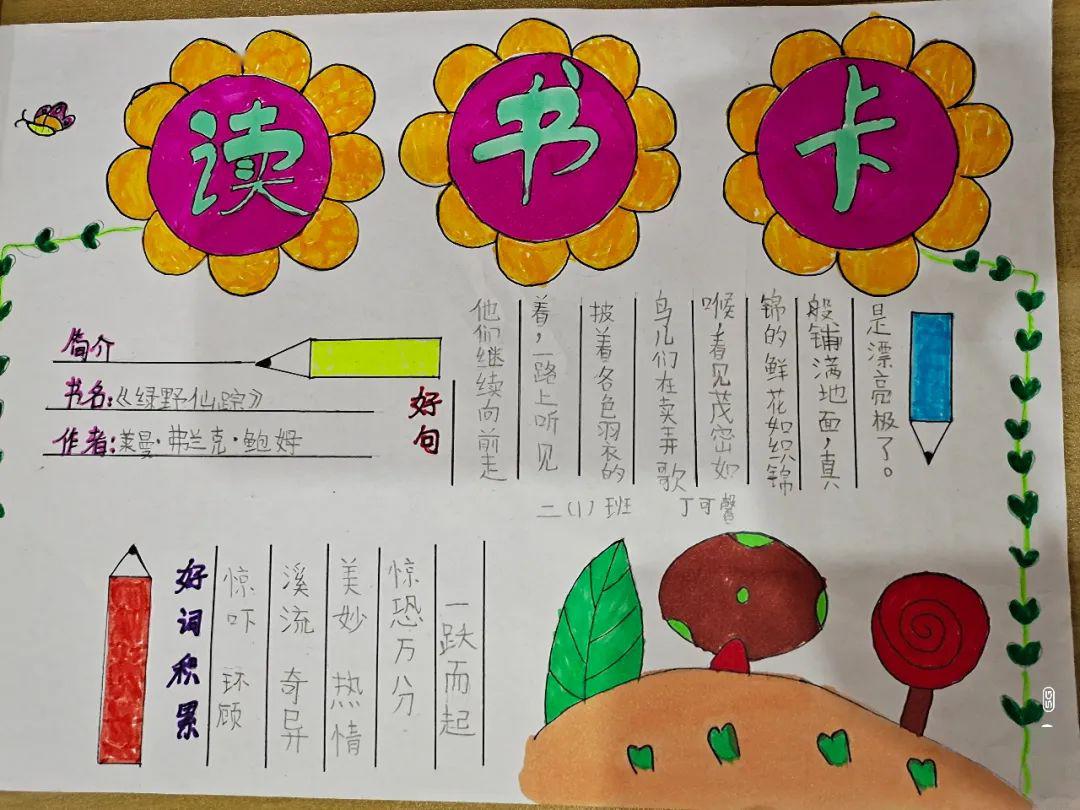 读书卡
简介
书名:《绿野仙踪》
作者:莱曼·弗兰克·鲍姆
好句
他们继续向前走
着，一路上听见
披着各色羽衣的
鸟儿们在卖弄歌
喉，看见茂密如
锦的鲜花如织锦
般铺满地面，真
是漂亮极了。
二(1)班 丁可馨
好词积累
惊吓 环顾
溪流 奇异
美妙 热情
惊恐万分
一跃而起
5G